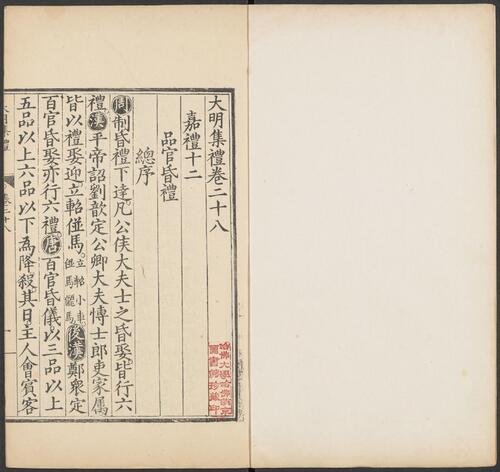 大明集禮卷二十八
嘉禮十二
品官昏禮
總序
周制昏禮下達凡公侯大夫士之昏娶皆行六
禮漢平帝詔劉歆定公卿大夫博士郎吏家属
皆以禮娶迎立軺倂馬立軺小車倂馬儷馬後漢鄭衆定
百官昏娶亦行六禮唐百官昏儀以三品以上
五品以上六品以下為降殺其日主人會賓客
哈佛大學哈佛燕京
圖書館珍藏印